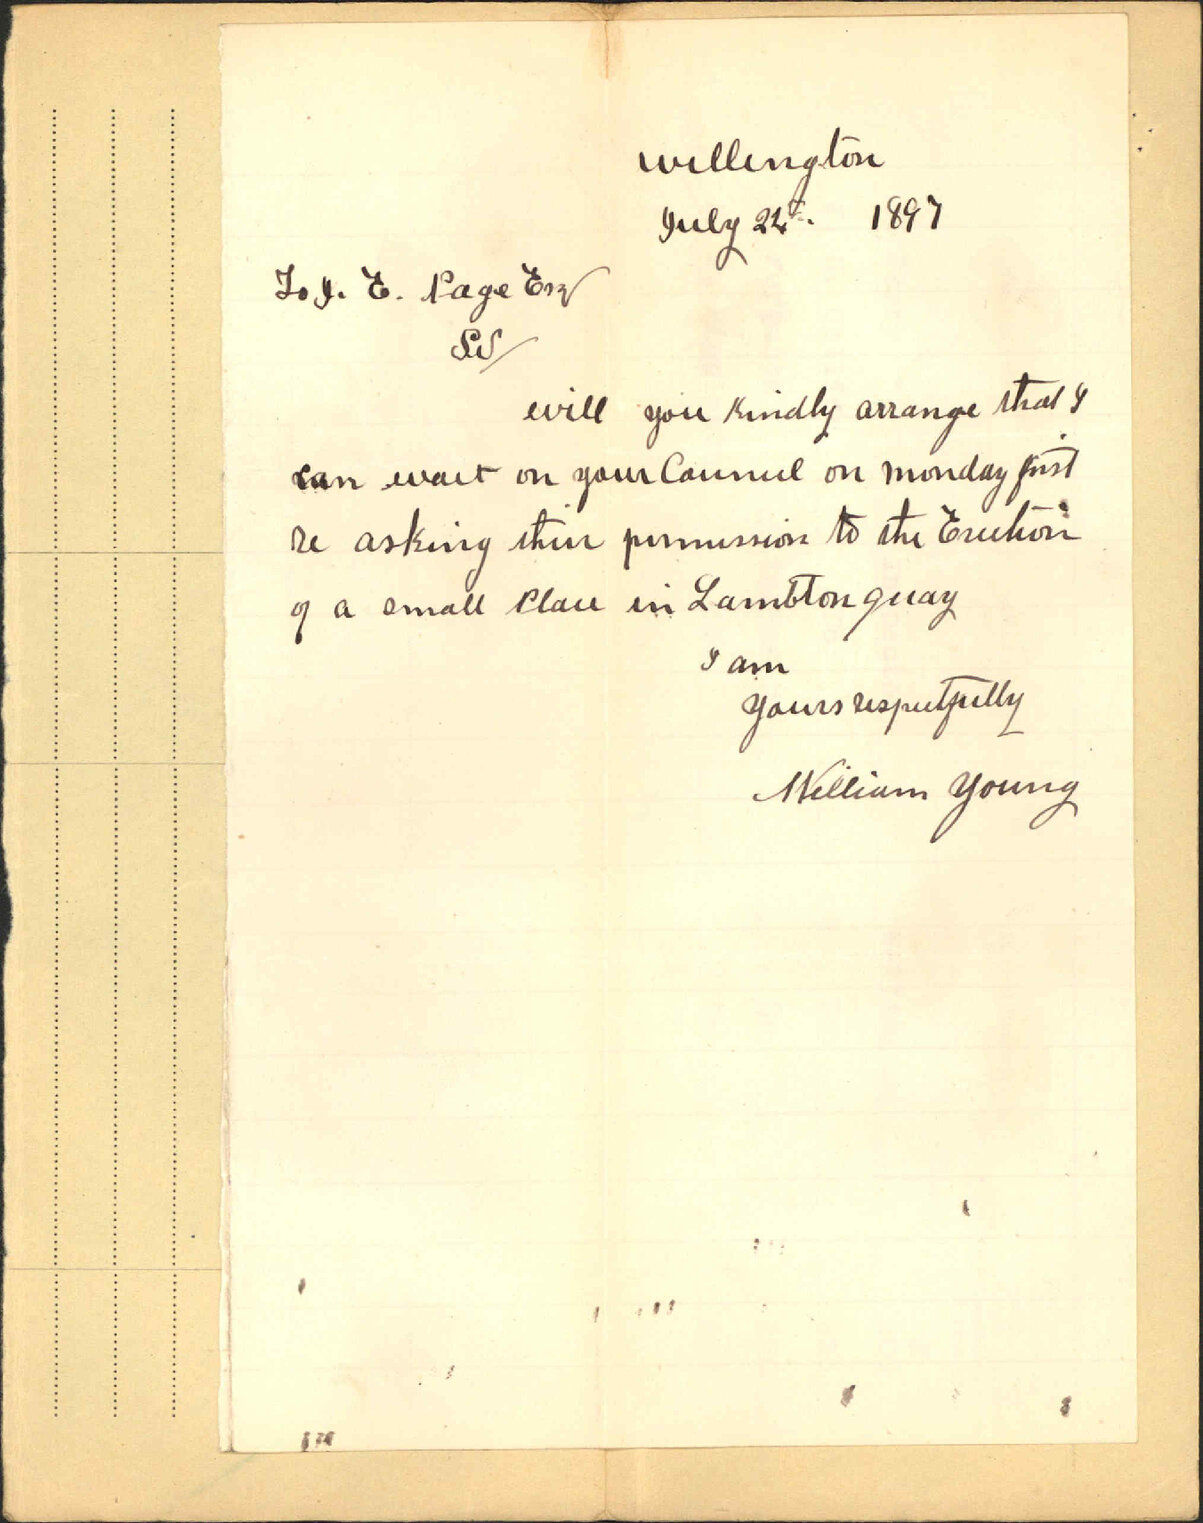 Wellington
July 24th. 1897
To J. E. Page Esq
Sir
will you kindly arrange that I
can wait on your Council on monday first
re asking their permission to the Erection
of a small Place in Lambton quay
I am
yours respectfully
William Young